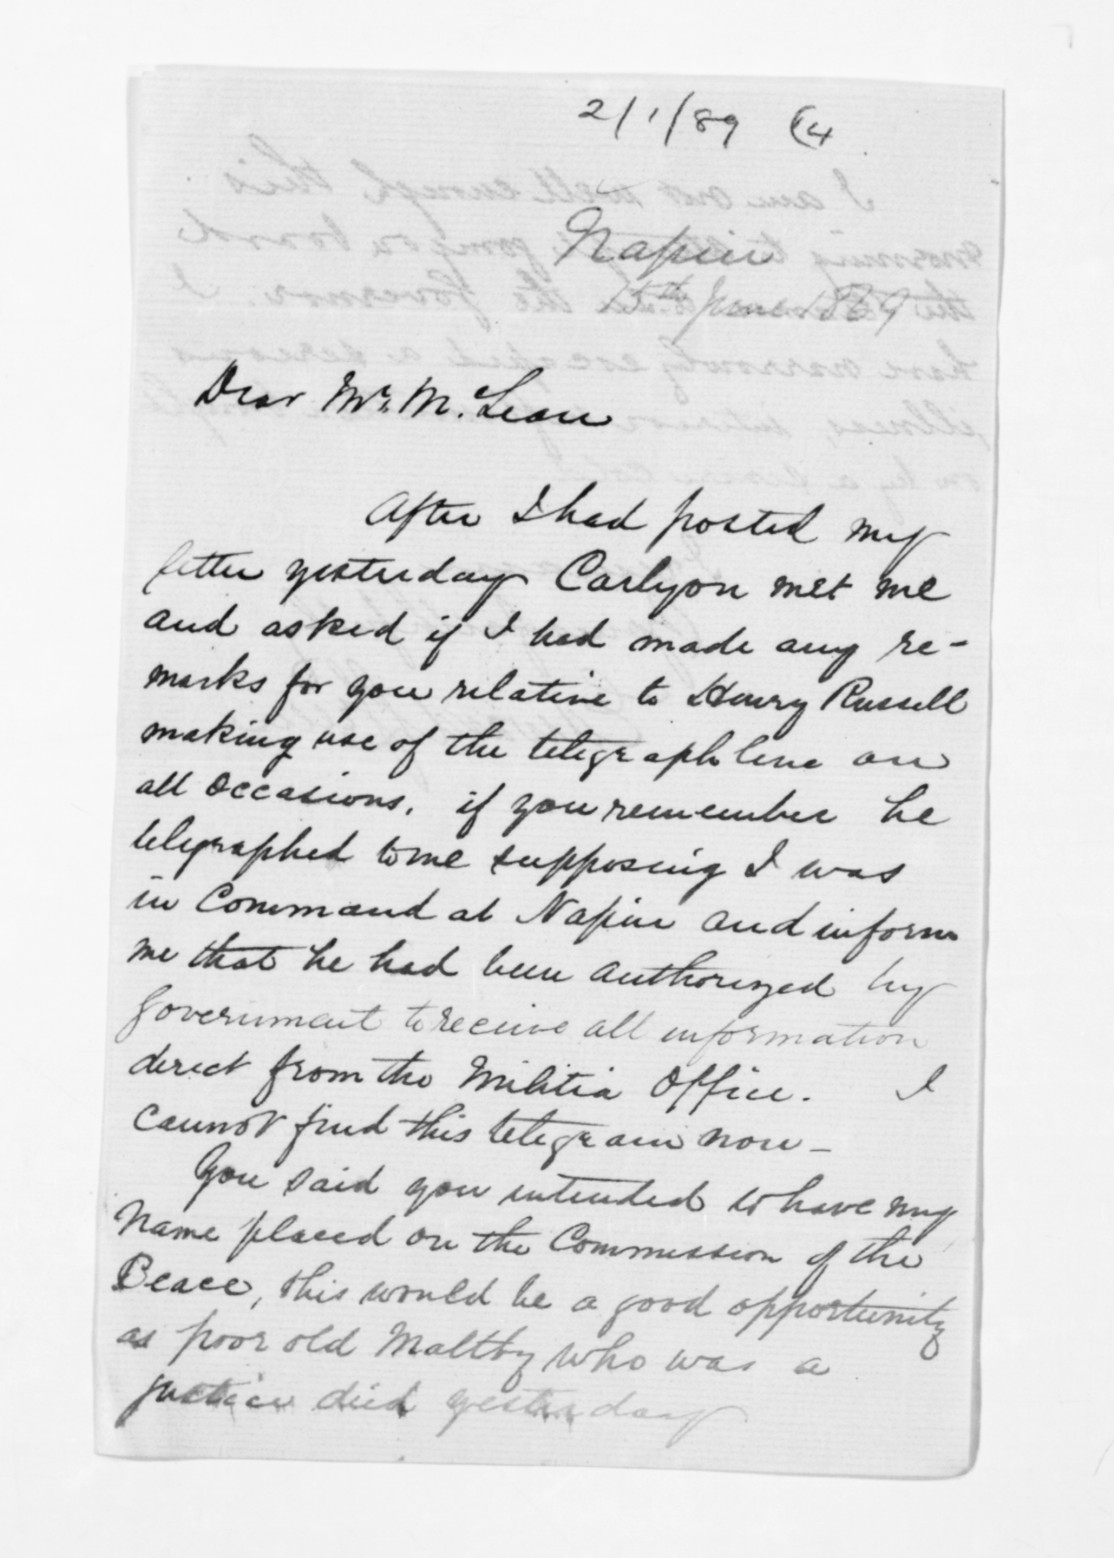 2/1/89 (4
Napier
15th June 1869
Dear Mr. McLean
After I had posted my
letter yesterday Carlyon met me
and asked if I had made any re-
marks for you relative to Henry Russell
making use of the telegraph line on
all occasions. if you remember he
telegraphed to me supposing I was
in Command at Napier and inform
me that he had been authorized by
Government to receive all information
direct from the Militia Office. I
cannot find this telegram now -
You said you intended to have my
Name placed on the Commission of the
Peace, this would be a good opportunity
as poor old Maltby who was a
justice died yesterday